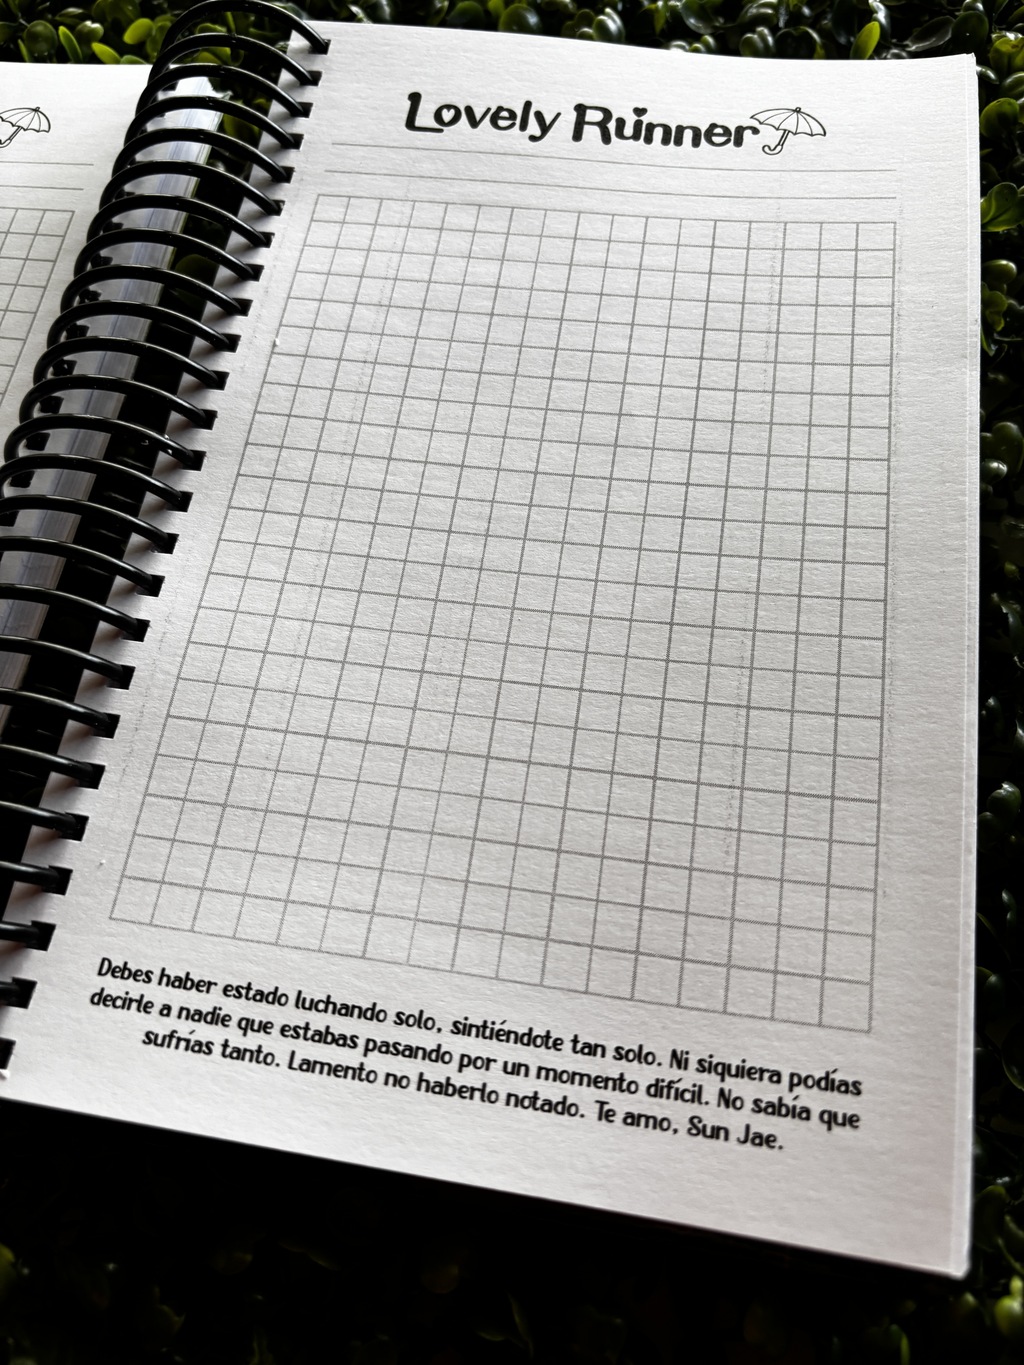 Lovely Runner
Debes haber estado luchando solo, sintiéndote tan solo. Ni siquiera podías
decirle a nadie que estabas pasando por un momento difícil. No sabía que
sufrías tanto. Lamento no haberlo notado. Te amo, Sun Jae.